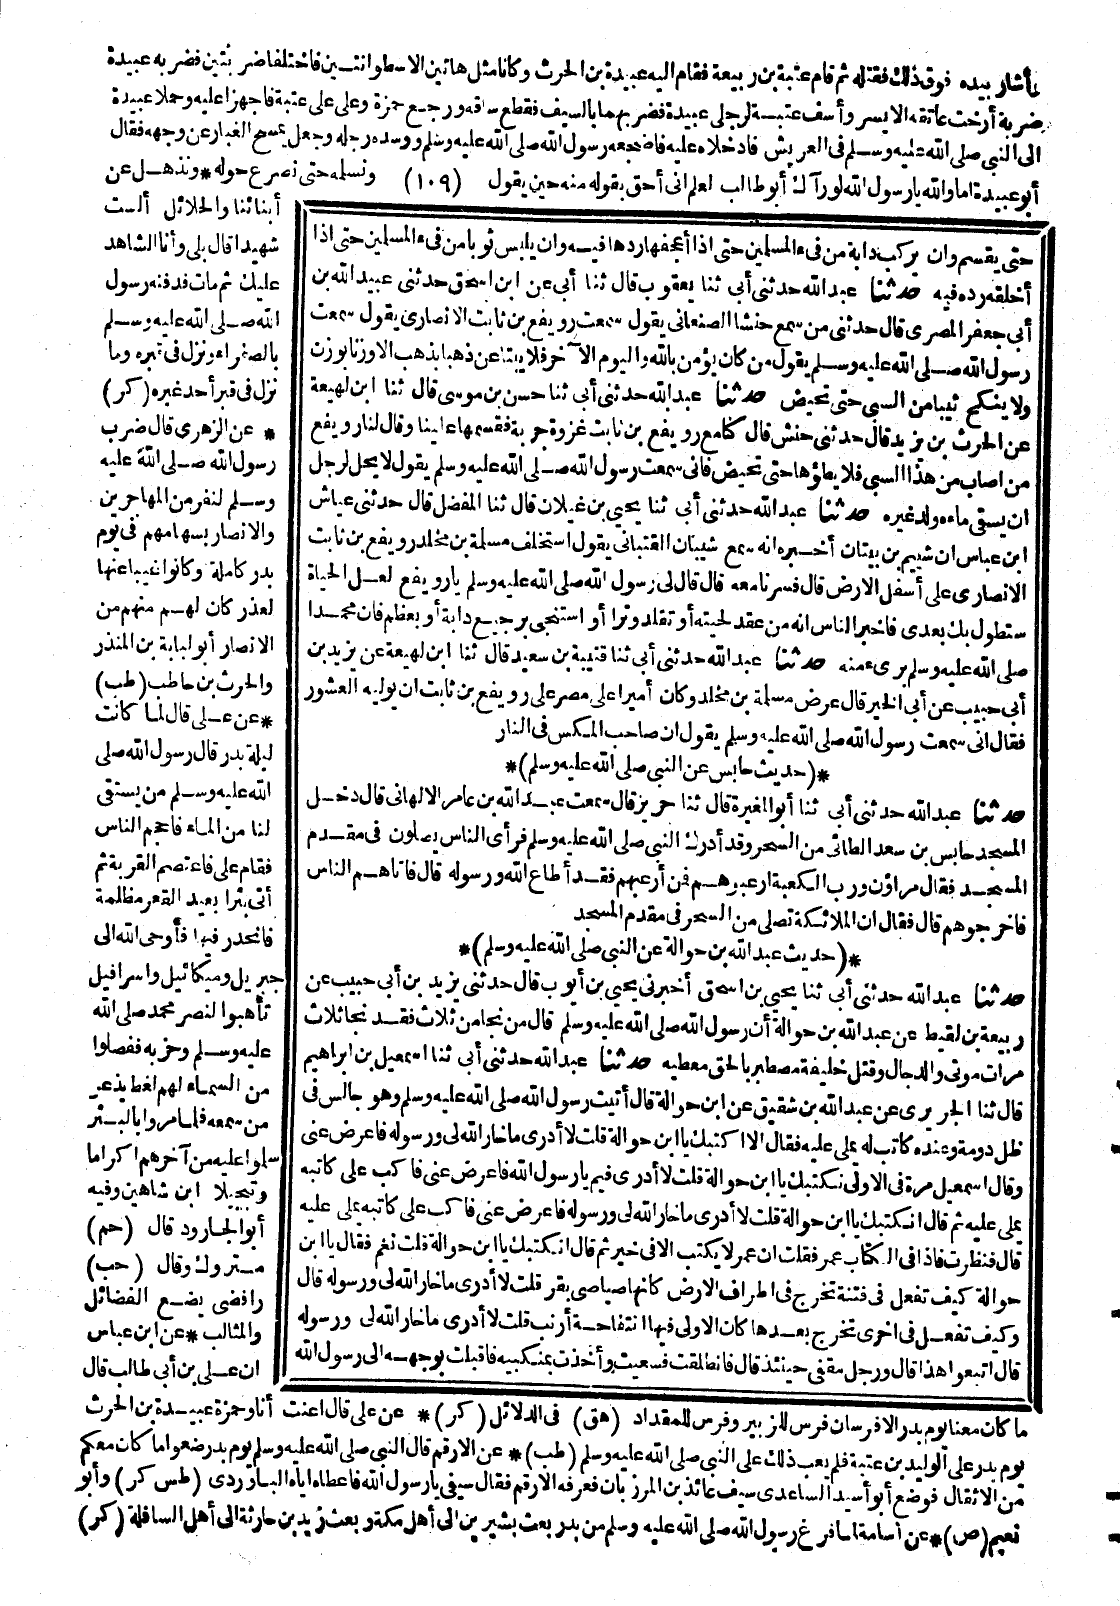 ثم أشار بيده فوق ذلك فقتله ثم قام عتبة بن ربيعة فقام اليه عبيدة بن الحرث وكانا مثل هاتين الاسطوانتين فاختلفا ضربتين فضربه عبيدة
ضربة أرخت عاتقه الايسر وأسف عتبة لرجلي عبيدة فضربهما بالسيف فقطع ساقه ورجع حمزة وعلى على عتبة فاجهزا عليه وحملا عبيدة
الى النبي صلى الله عليه وسلم فى العريش فادخلاه عليه فاضجعه رسول الله صلى الله عليه وسلم ووسده رجله وجعل يمسح الغبار عن وجهه فقال
أبو عبيدة اما والله يارسول الله لو رآك أبو طالب لعلم انى أحق بقوله منه حين يقول (١٠٩) ونسلمه حتى نصرع حوله * ونذهل عن
حتى يقسم وان يركب دابة من فىء المسلمين حتى اذا أعجفها ردها فيه وان يلبس ثوبا من فىء المسلمين حتى اذا
أخلقه رده فيه حدثنا عبد الله حدثنى أبى ثنا يعقوب قال ثنا أبى عن ابن اسحق حدثنى عبيد الله بن
أبى جعفر المصرى قال حدثنى من سمع حنشا الصنعانى يقول سمعت رويفع بن ثابت الانصارى يقول سمعت
رسول الله صلى الله عليه وسلم يقول من كان يؤمن بالله واليوم الآخر فلا يبتاعن ذهبا بذهب الا وزنا بوزن
ولا ينكح ثيبا من السبى حتى تحيض حدثنا عبد الله حدثنى أبى ثنا حسن بن موسى قال ثنا ابن لهيعة
عن الحرث بن يزيد قال حدثنى حنش قال كنا مع رويفع بن ثابت غزوة جربة فقسمها علينا وقال لنا رويفع
من اصاب من هذا السبى فلا يطؤها حتى تحيض فانى سمعت رسول الله صلى الله عليه وسلم يقول لا يحل لرجل
ان يسقى ماءه ولد غيره حدثنا عبد الله حدثنى أبى ثنا يحيى بن غيلان قال ثنا المفضل قال حدثنى عياش
ابن عباس ان شييم بن بيتان أخبره انه سمع شيبان القتبانى يقول استخلف مسلمة بن مخلد رويفع بن ثابت
الانصارى على أسفل الارض قال فسرنا معه قال قال لى رسول الله صلى الله عليه وسلم يا رويفع لعل الحياة
ستطول بك بعدى فاخبر الناس انه من عقد لحيته أو تقلد وترا أو استنجى برجيع دابة أو بعظم فان محمدا
صلى الله عليه وسلم برىء منه حدثنا عبد الله حدثنى أبى ثنا قتيبة بن سعيد قال ثنا ابن لهيعة عن يزيد بن
أبى حبيب عن أبى الخير قال عرض مسلمة بن مخلد وكان أميرا على مصر على رويفع بن ثابت ان يوليه العشور
فقال انى سمعت رسول الله صلى الله عليه وسلم يقول ان صاحب المكس فى النار
*(حديث حابس عن النبى صلى الله عليه وسلم)*
حدثنا عبد الله حدثنى أبى ثنا أبو المغيرة قال ثنا حريز قال سمعت عبد الله بن عامر الالهانى قال دخل
المسجد حابس بن سعد الطائى من السحر وقد أدرك النبى صلى الله عليه وسلم فرأى الناس يصلون فى مقدم
المسجد فقال مراؤن ورب الكعبة ارعبوهم فمن أرعبهم فقد أطاع الله ورسوله قال فاتاهم الناس
فاخرجوهم قال فقال ان الملائكة تصلى من السحر فى مقدم المسجد
*(حديث عبد الله بن حوالة عن النبى صلى الله عليه وسلم)*
حدثنا عبد الله حدثنى أبى ثنا يحيى بن اسحق أخبرنى يحيى بن أيوب قال حدثنى يزيد بن أبى حبيب عن
ربيعة بن لقيط عن عبد الله بن حوالة أن رسول الله صلى الله عليه وسلم قال من نجا من ثلاث فقد نجا ثلاث
مرات موتى والدجال وقتل خليفة مصطبر بالحق معطيه حدثنا عبد الله حدثنى أبى ثنا اسمعيل بن ابراهيم
قال ثنا الجريرى عن عبد الله بن شقيق عن ابن حوالة قال أتيت رسول الله صلى الله عليه وسلم وهو جالس فى
ظل دومة وعنده كاتب له يملى عليه فقال الا اكتبك يا ابن حوالة قلت لا أدرى ما خار الله لى ورسوله فاعرض عنى
وقال اسمعيل مرة فى الاولى نكتبك يا ابن حوالة قلت لا أدرى فيم يارسول الله فاعرض عنى فاكب على كاتبه
يملى عليه ثم قال انكتبك يا ابن حوالة قلت لا أدرى ما خار الله لى ورسوله فاعرض عنى فاكب على كاتبه يملى عليه
قال فنظرت فاذا فى الكتاب عمر فقلت ان عمر لا يكتب الا فى خير ثم قال انكتبك يا ابن حوالة قلت نعم فقال يا ابن
حوالة كيف تفعل فى فتنة تخرج فى اطراف الارض كانها صياصى بقر قلت لا أدرى ما خار الله لى ورسوله قال
وكيف تفعل فى اخرى تخرج بعدها كان الاولى فيها انتفاجة أرنب قلت لا أدرى ما خار الله لى ورسوله
قال اتبعوا هذا قال ورجل مقفى حينئذ قال فانطلقت فسعيت وأخذت بمنكبيه فاقبلت بوجهه الى رسول الله
أبنائنا والحلائل ألست
شهيدا قال بلى وأنا الشاهد
عليك ثم مات فدفنه رسول
الله صلى الله عليه وسلم
بالصفراء ونزل فى قبره وما
نزل فى قبر أحد غيره (كر)
* عن الزهرى قال ضرب
رسول الله صلى الله عليه
وسلم لنفر من المهاجرين
والانصار بسهامهم فى يوم
بدر كاملة وكانوا غيبا عنها
لعذر كان لهم منهم من
الانصار أبو لبابة بن المنذر
والحرث بن حاطب (طب)
* عن على قال لما كانت
ليلة بدر قال رسول الله صلى
الله عليه وسلم من يستقى
لنا من الماء فاحجم الناس
فقام على فاعتصم القربة ثم
أتى بئرا بعيد القعر مظلمة
فانحدر فيها فأوحى الله الى
جبريل وميكائيل واسرافيل
تأهبوا لنصر محمد صلى الله
عليه وسلم وحزبه ففصلوا
من السماء لهم لغط يذعر
من سمعه فلما مروا بالبئر
سلموا عليه من آخرهم اكراما
وتبجيلا ابن شاهين وفيه
أبو الجارود قال (حم)
متروك وقال (حب)
رافضى يضع الفضائل
والمثالب * عن ابن عباس
ان على بن أبى طالب قال
ما كان معنا يوم بدر الا فرسان فرس للزبير وفرس للمقداد (هق) فى الدلائل (كر) * عن على قال اعنت أنا وحمزة عبيدة بن الحرث
يوم بدر على الوليد بن عتبة فلم يعب ذلك على النبى صلى الله عليه وسلم (طب) * عن الارقم قال النبى صلى الله عليه وسلم يوم بدر ضعوا ما كان معكم
من الاثقال فوضع أبو أسيد الساعدى سيف عائذ بن المرزبان فعرفه الارقم فقال سيفى يارسول الله فاعطاه اياه الباوردى (طس كر) وأبو
نعيم (ص) * عن أسامة لما فرغ رسول الله صلى الله عليه وسلم من بدر بعث بشيرين الى أهل مكة وبعث زيد بن حارثة الى أهل السافلة (كر)